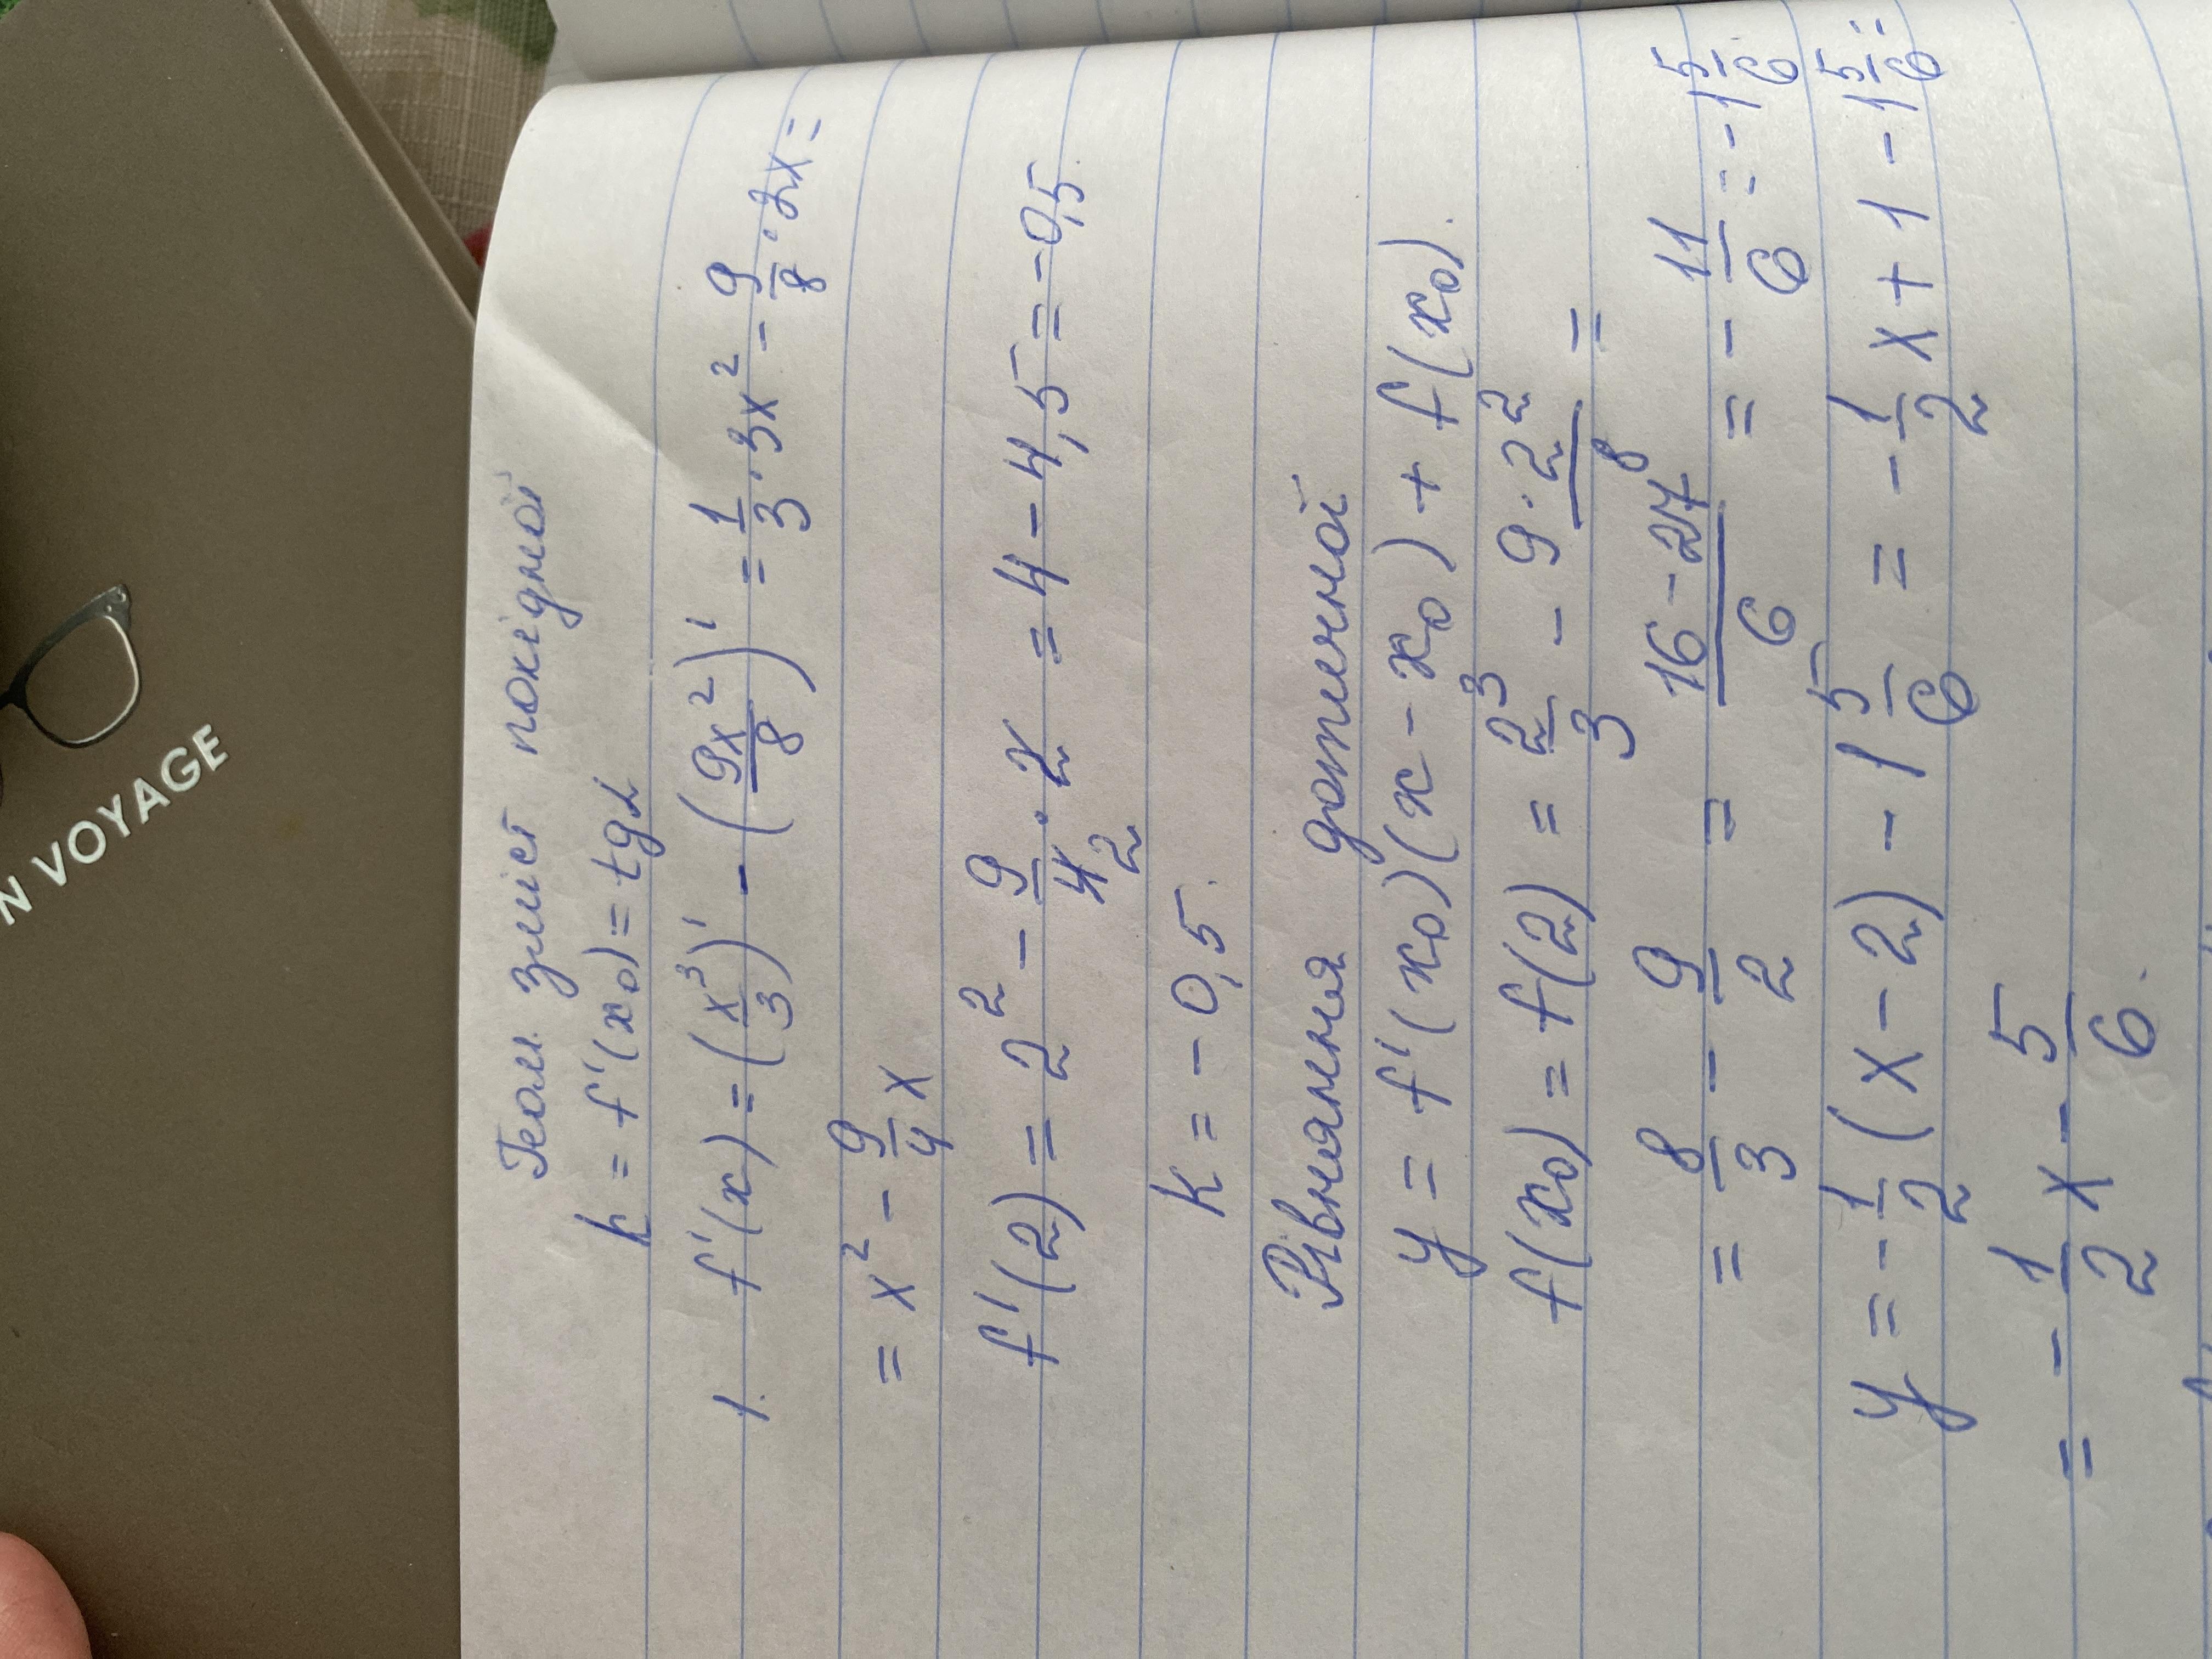 N VOYAGE
Геом. зміст похідної
k = f'(x₀) = tgα
1. f'(x) = (x³/3)' - (9x²/8)' = 1/3 · 3x² - 9/8 · 2x =
= x² - 9/4 x
f'(2) = 2² - 9/4 · 2 = 4 - 4,5 = -0,5
2
k = -0,5.
Рівняння дотичної
y = f'(x₀)(x - x₀) + f(x₀).
f(x₀) = f(2) = 2³/3 - 9·2²/8 =
= 8/3 - 9/2 = 16-27/6 = - 11/6 = -1 5/6
y = - 1/2 (x - 2) - 1 5/6 = - 1/2 x + 1 - 1 5/6 =
= - 1/2 x - 5/6.